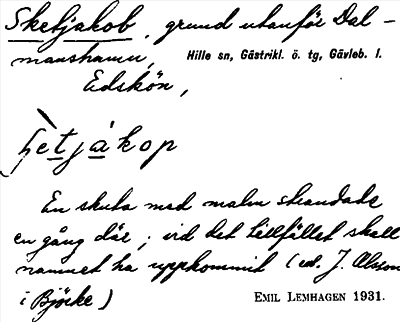 Sketjakob, grund utanför Dal-
manshamn, Hille sn, Gästrikl. ö. tg, Gävleb. l.
Edskön,
ʃetjákop
En skuta med malm strandade
en gång där; vid det tillfället skall
namnet ha uppkommit (enl. J. Olsson
i Björke) EMIL LEMHAGEN 1931.